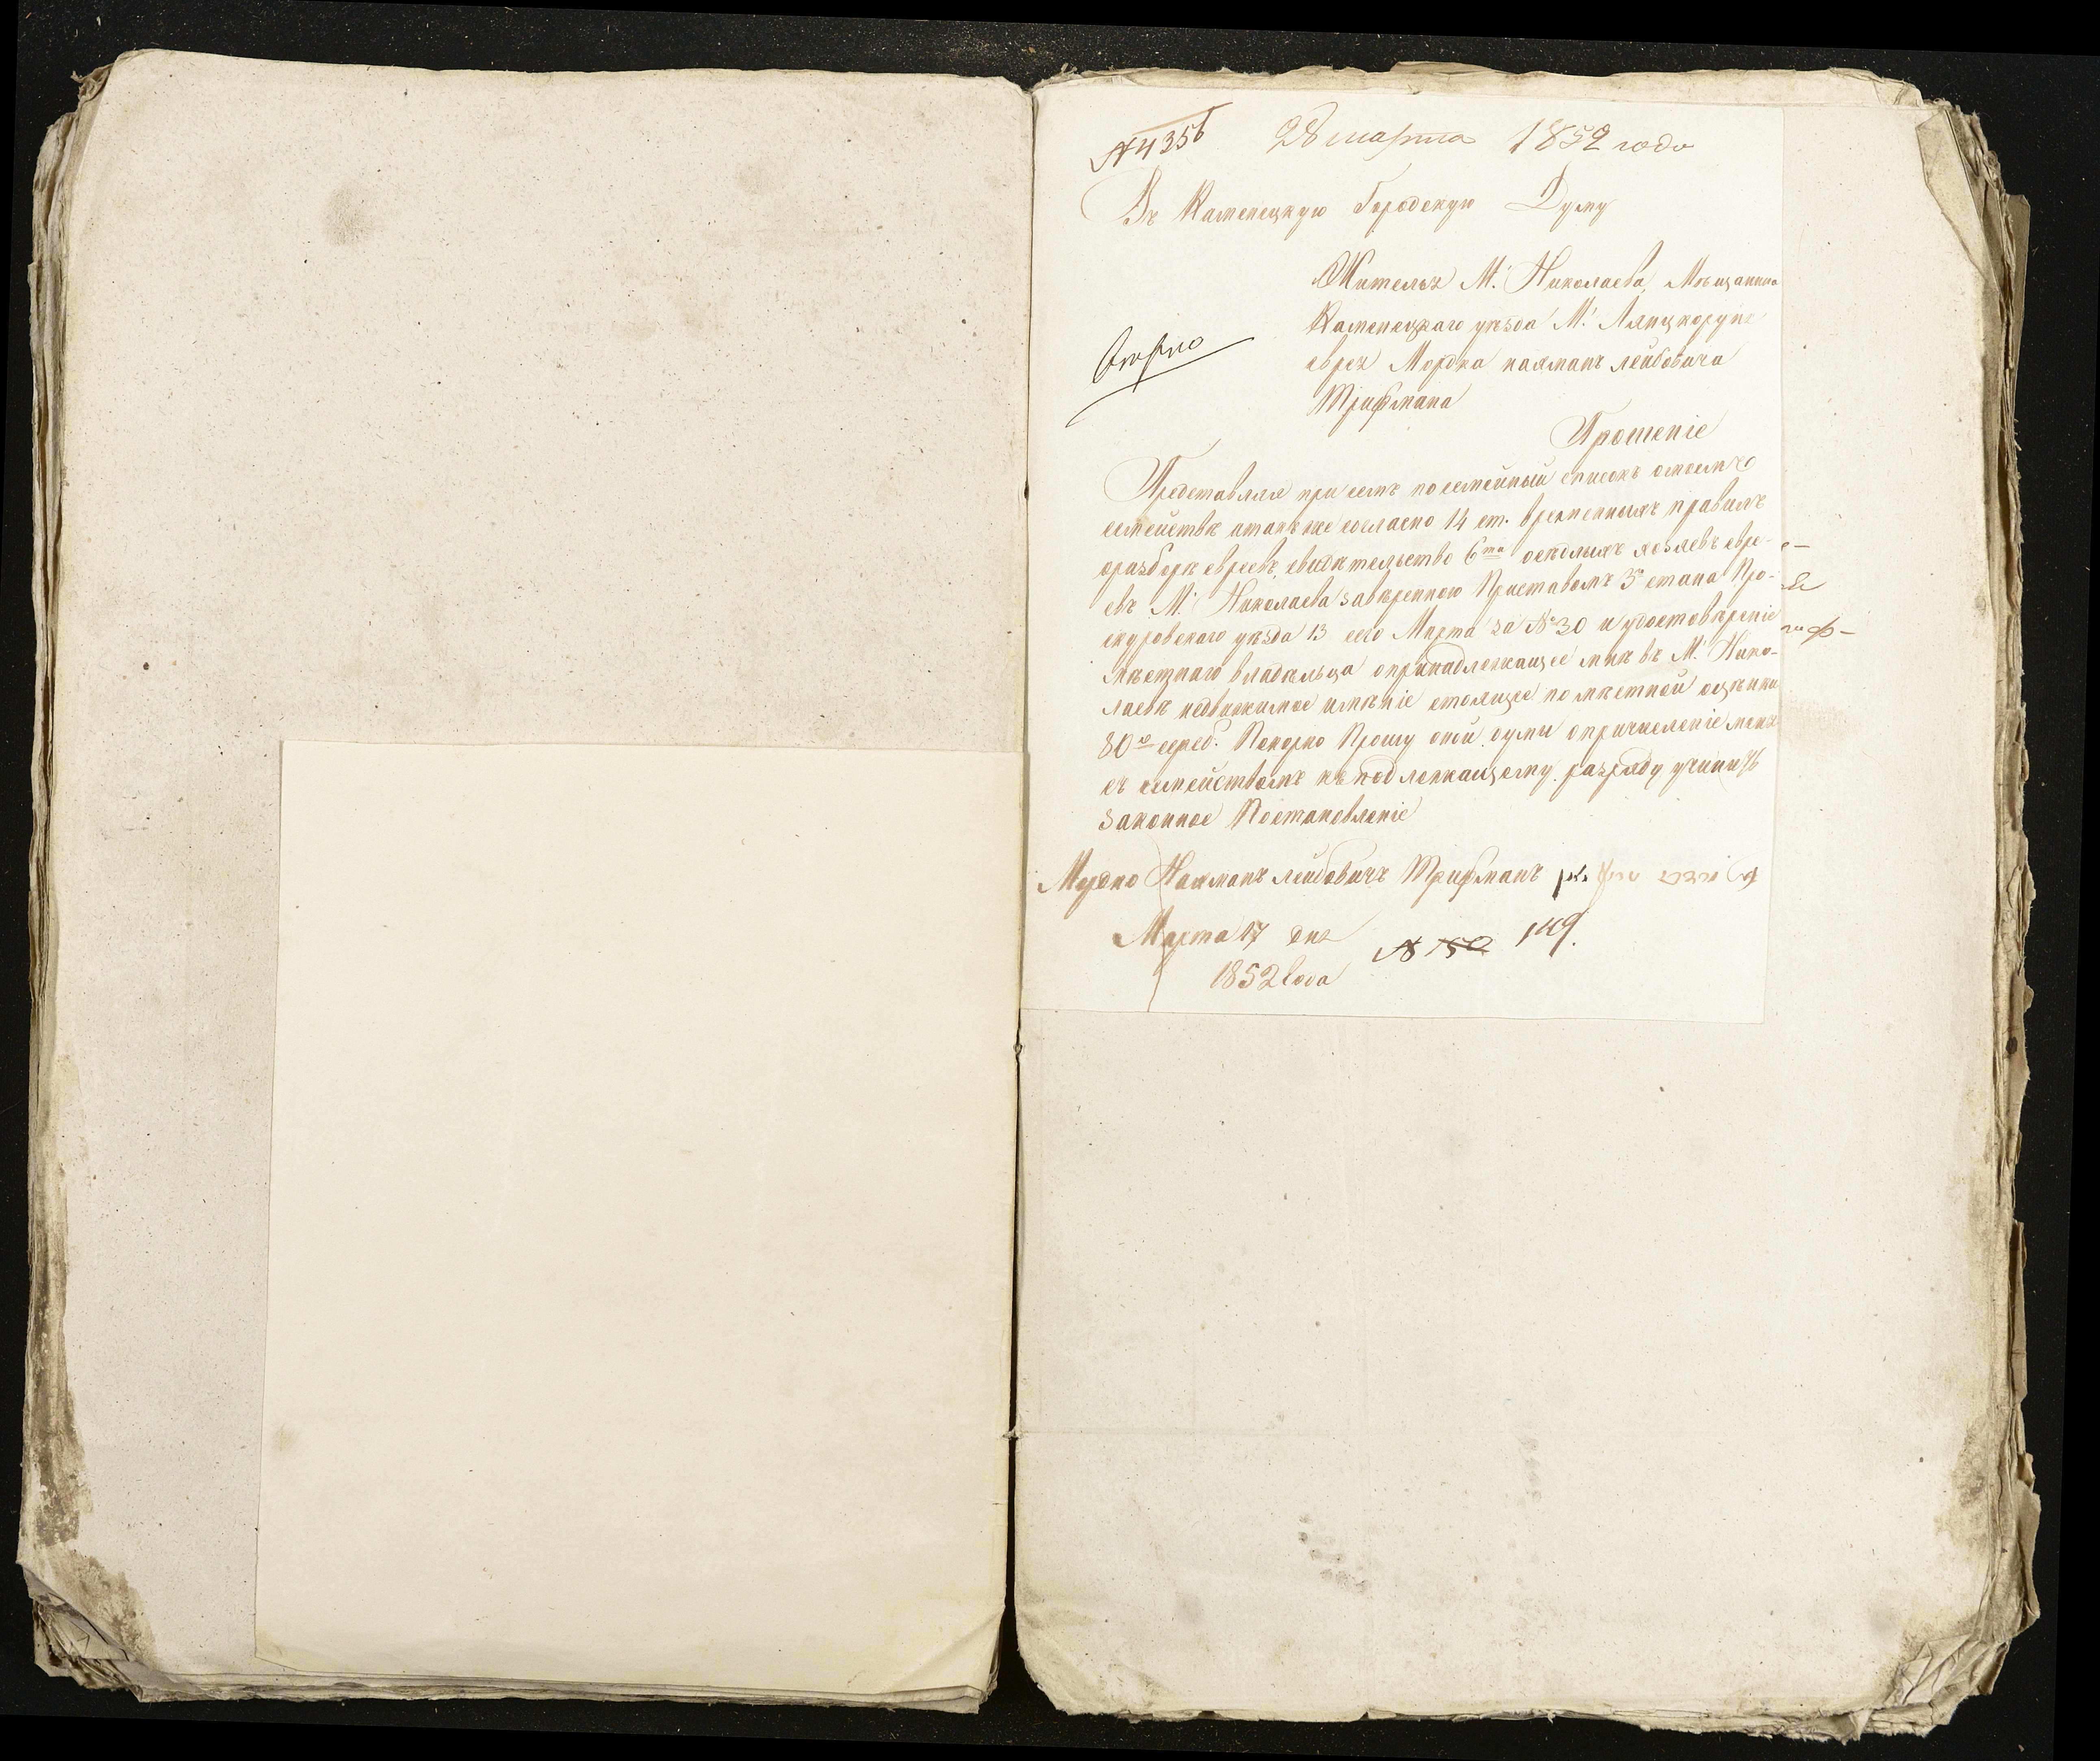 № 4356 28 марта 1852 года
Въ Каменецкую Городскую Думу
Жителя М. Николаева, Мѣщанина
Каменецкаго уѣзда М. Лянцкоруня
еврея Мордка Нахмана Лейбовича
Трифмана
Прошеніе
Представляя при семъ посемейный списокъ о моемъ
семействѣ а также согласно 14 ст. временныхъ правилъ
о разборѣ евреевъ, свидѣтельство 6ти осѣдлыхъ хозяевъ евре-
евъ М. Николаева завѣренною Приставомъ 3го стана Про-
скуровскаго уѣзда 13 сего Марта за № 30 и удостовѣреніе
мѣстнаго владельца о принадлежащее мнѣ въ М. Нико-
лаевѣ недвижимое имѣніе стоящее по мѣстной оцѣнки
80 р. сереб. Покорно Прошу оной думы о причисленіе меня
съ семействомъ къ подлежащему разряду учинить
законное Постановленіе
Мордко Нахманъ Лейбовичъ Трифманъ
Марта 17 дня № 150 149.
1852 года